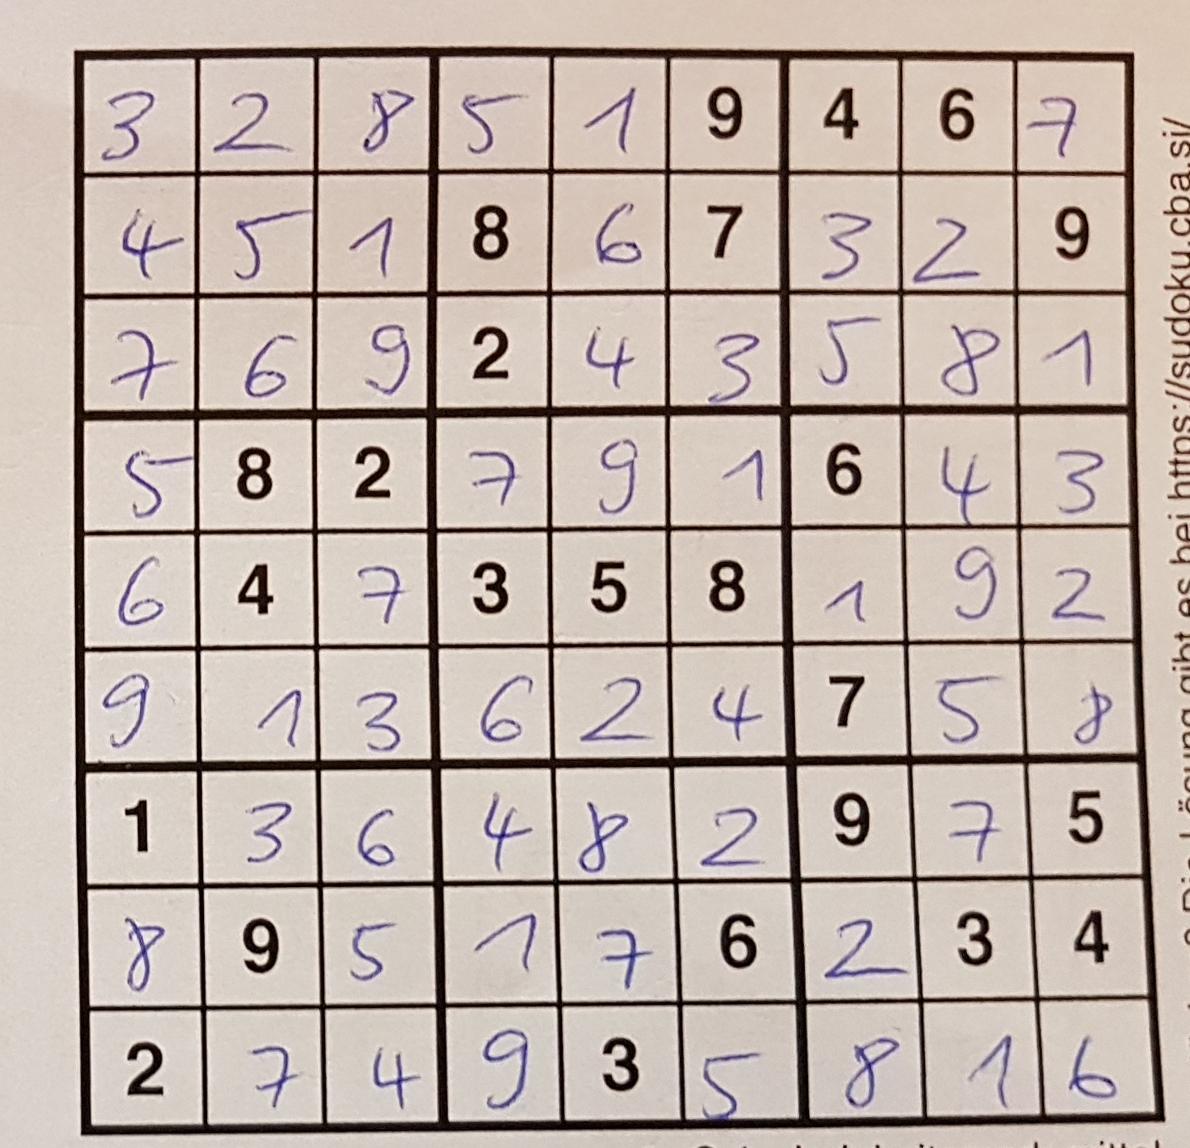 3 2 8 5 1 9 4 6 7
4 5 1 8 6 7 3 2 9
7 6 9 2 4 3 5 8 1
5 8 2 7 9 1 6 4 3
6 4 7 3 5 8 1 9 2
9 1 3 6 2 4 7 5 8
1 3 6 4 8 2 9 7 5
8 9 5 1 7 6 2 3 4
2 7 4 9 3 5 8 1 6
? Die Lösung gibt es bei https://sudoku.cba.si/